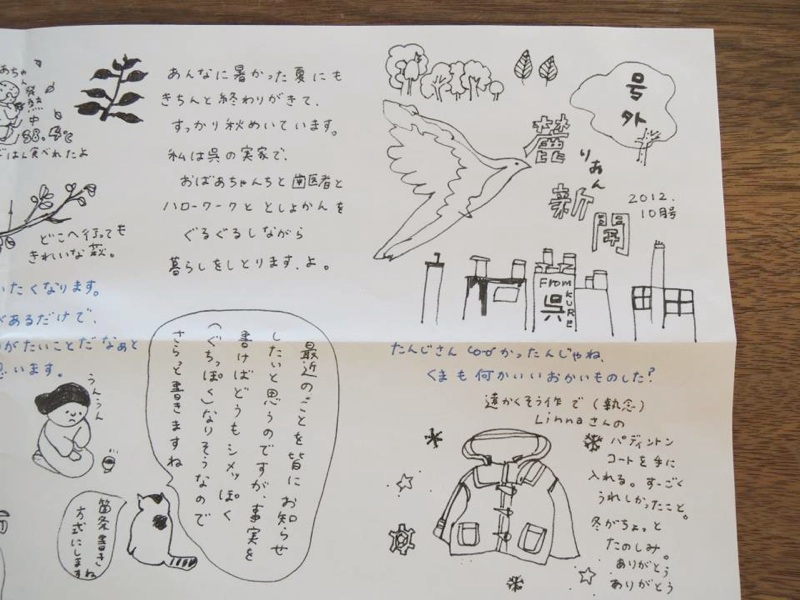 号外
麓
りあん
新聞
2012.
10月号
From
呉
KURE
あんなに暑かった夏にも
きちんと終わりがきて、
すっかり秋めいています。
私は呉の実家で、
おばあちゃんちと歯医者と
ハローワークと としょかんを
ぐるぐるしながら
暮らしをしとります、よ。
発熱中
38.4℃
ごはん食べれたよ
どこへ行っても
きれいな萩。
いたくなります。
あるだけで、
がたいことだなぁと
思います。
うんうん
最近のことを皆にお知らせ
したいと思うのですが、事実を
書けばどうもシメッぽく
(ぐちっぽく)なりそうなので
さらっと書きますね
箇条書き
方式にしますね
たんじさん かったんじゃね、
くまも何かいいおかいものした?
遠かくそう作で(執念)
Linnaさんの
パディントン
コートを手に
入れる。すーごく
うれしかったこと。
冬がちょっと
たのしみ。
ありがとう
ありがとう